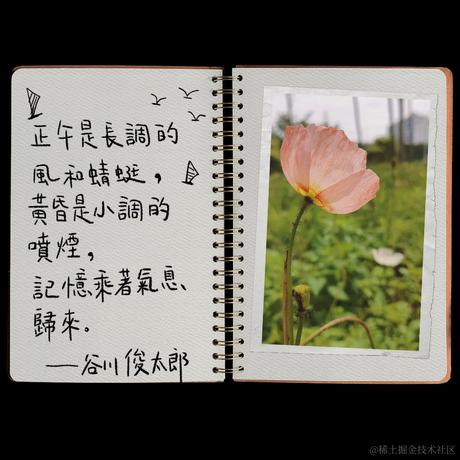 正午是長調的
風和蜻蜓，
黃昏是小調的
噴煙，
記憶乘著氣息、
歸來。
——谷川俊太郎
@稀土掘金技术社区